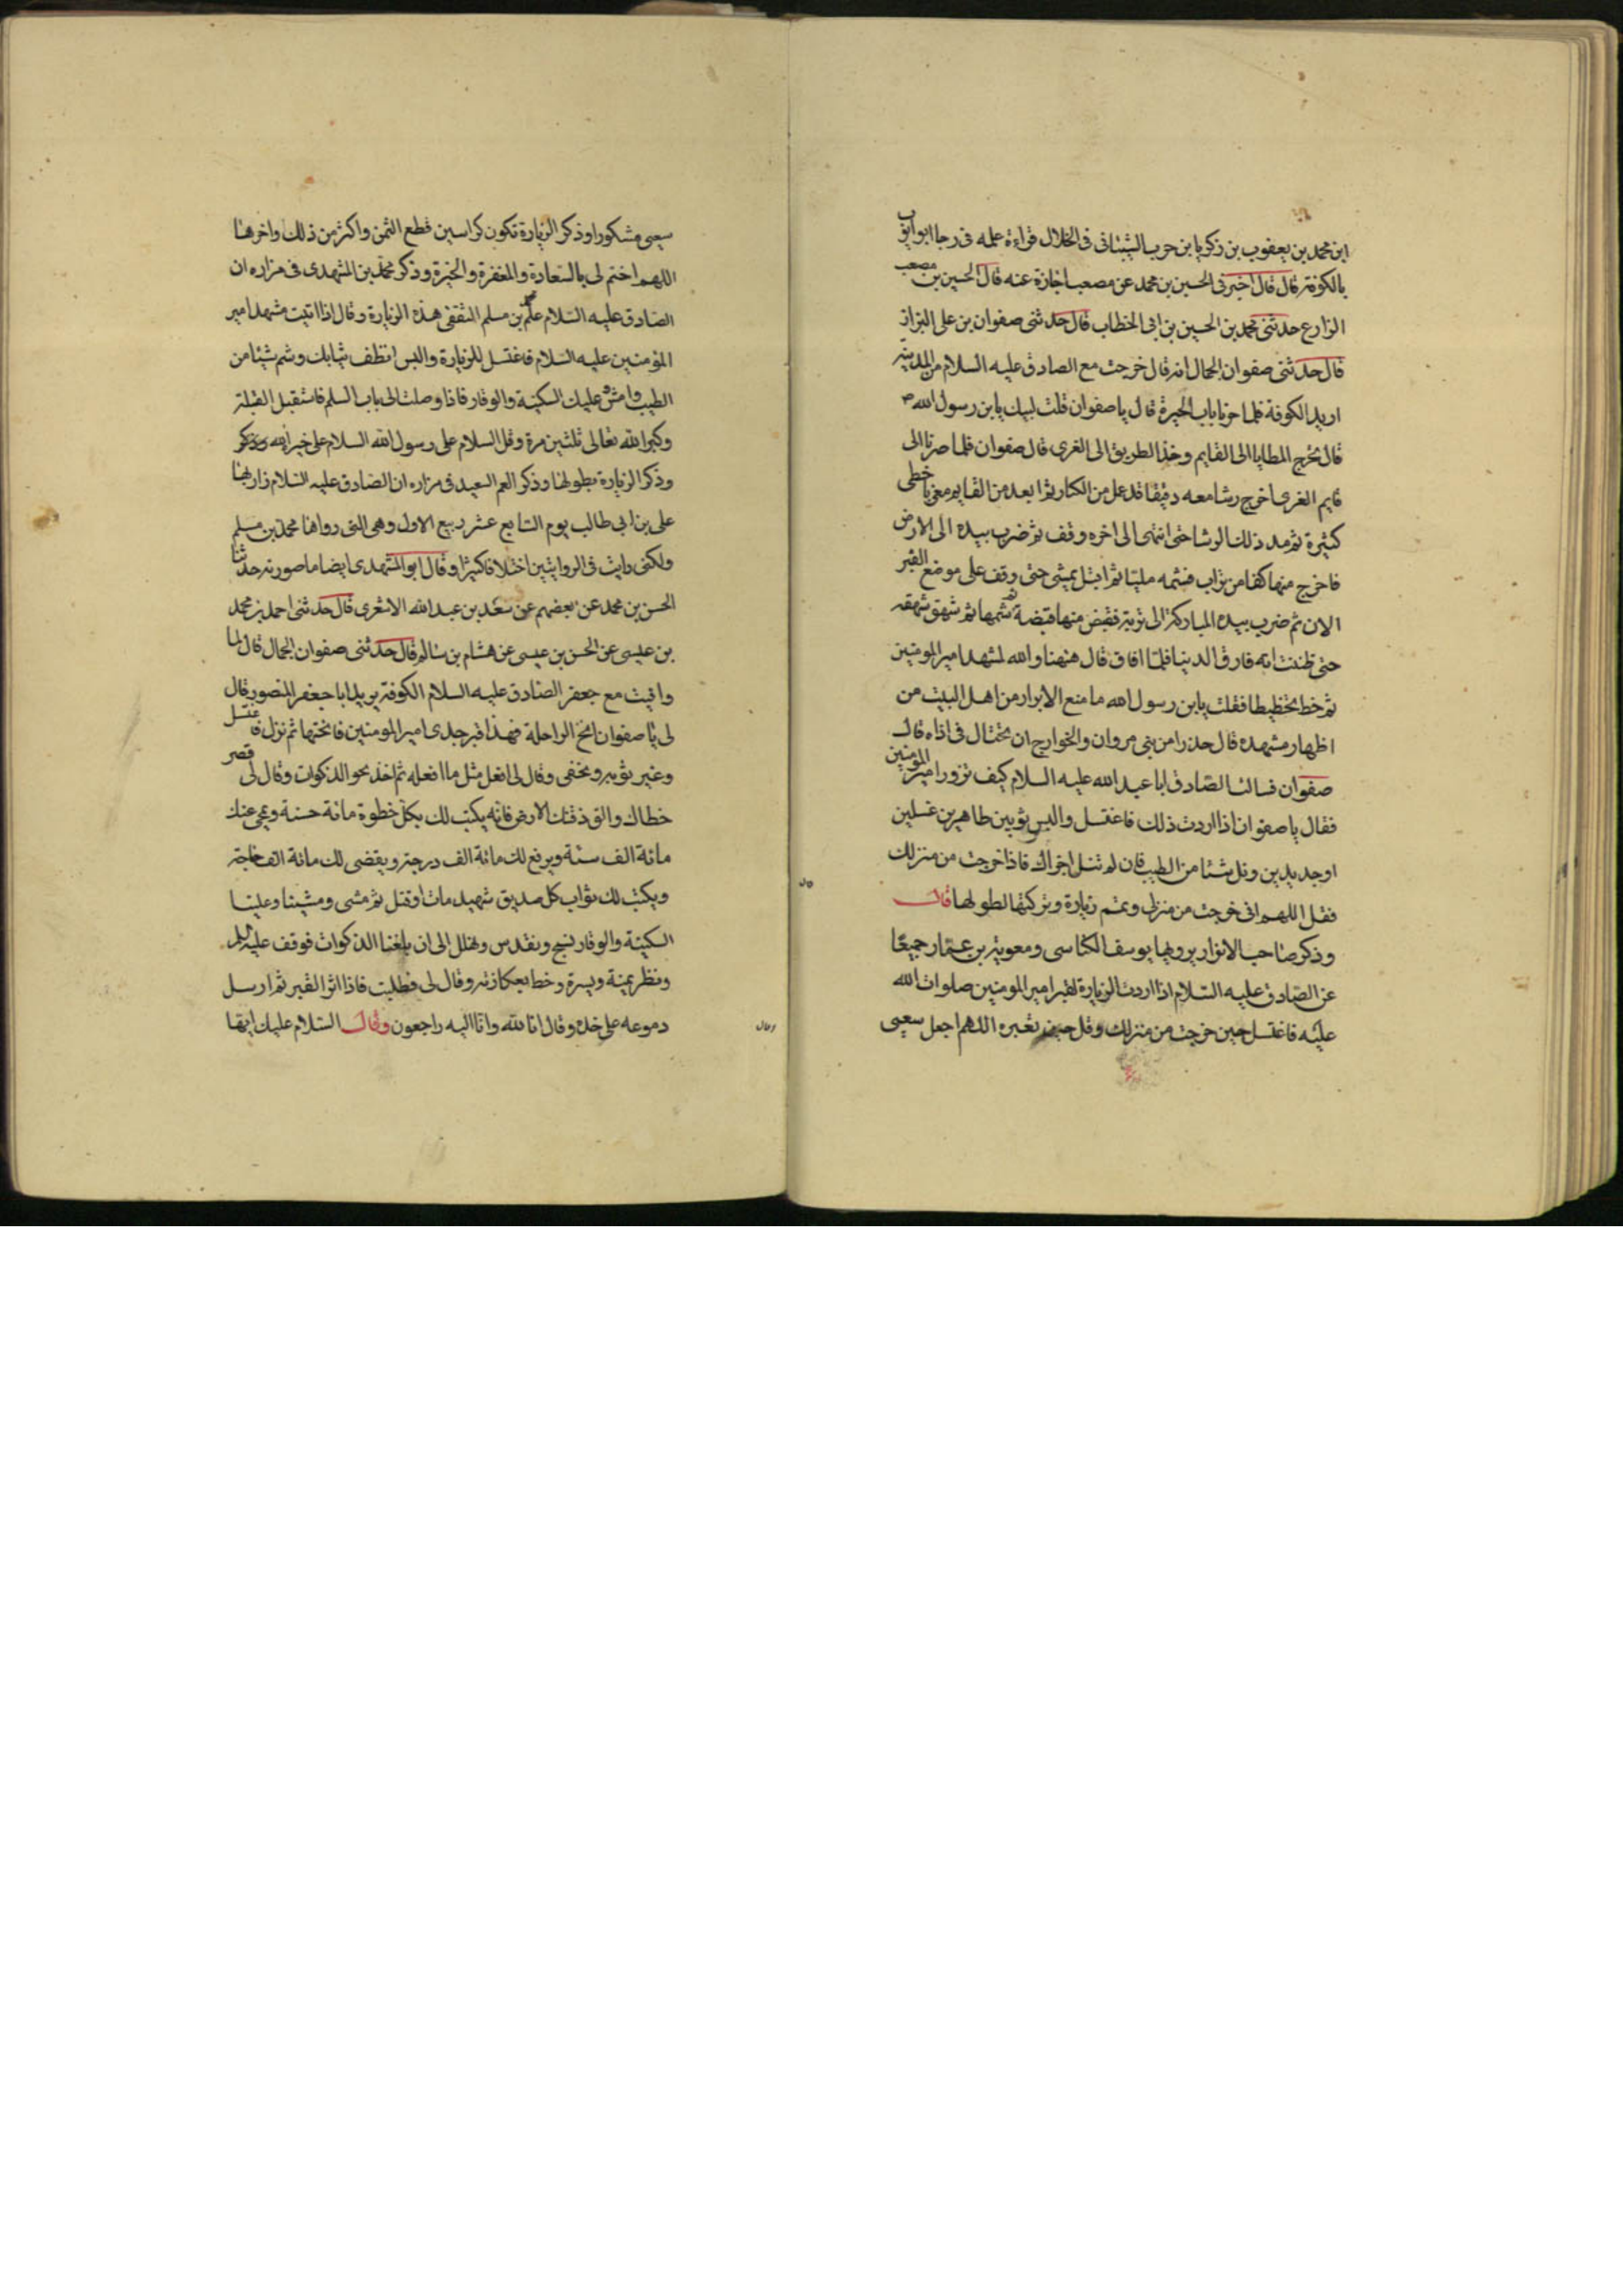 ابن محمد بن يعقوب بن زكريا بن حرب الشيبانى فى الخلال قراءة عليه فى رجا ابواب
بالكوفة قال قال اخبرنى الحسين بن محمد عن مصعب اجازة عنه قال الحسين بن مصعب
الزارع حدثنى محمد بن الحسين بن ابى الخطاب قال حدثنى صفوان بن على البزاز
قال حدثنى صفوان الجمال انه قال خرجت مع الصادق عليه السلام من المدينة
اريد الكوفة فلما جزنا باب الحيرة قال ياصفوان قلت لبيك يابن رسول الله ص
قال تخرج المطايا الى القايم وخذ الطريق الى الغرى قال صفوان فلما صرنا الى
قايم الغرى اخرج رشا معه دقيقا قد عمل من الكنار ثم ابعد من القايم مغربا خطى
كثيرة ثم مد ذلك الرشا حتى انتهى الى اخره وقف ثم ضرب بيده الى الارض
فاخرج منها كفا من تراب فشمه مليا ثم اقبل يمشى حتى وقف على موضع القبر
الان ثم ضرب بيده المباركة الى تربة فقبض منها قبضة ثم شمها ثم شهق شهقة
حتى ظننت انه فارق الدنيا فلما افاق قال ههنا والله مشهد امير المومنين
ثم خط تخطيطا فقلت يابن رسول الله ما منع الابرار من اهل البيت من
اظهار مشهده قال حذرا من بنى مروان والخوارج ان تحتال فى اذاه قال
صفوان فسالت الصادق ابا عبد الله عليه السلام كيف تزور امير المومنين
فقال يا صفوان اذا اردت ذلك فاغتسل والبس ثوبين طاهرين غسلين
اوجديدين ونل شيئا من الطيب فان لم تنل اجزاك فاذا خرجت من منزلك
فقل اللهم انى خرجت من منزلى وتمم زيارة وتركتها لطولها قال
وذكر صاحب الانوار يرويها يوسف الكناسى ومعوية بن عمار جميعا
عن الصادق عليه السلام اذا اردت الزيارة لقبر امير المومنين صلوات الله
عليه فاغتسل حين خرجت من منزلك وقل حين تغبره اللهم اجعل سعيى
سعيى مشكورا وذكر الزيارة تكون كراسين قطع الثمن واكثر من ذلك واخرها
اللهم اختم لى بالسعادة والمغفرة والخيرة وذكر محمد بن المشهدى فى مزاره ان
الصادق عليه السلام علم محمد بن مسلم الثقفى هذه الزيارة وقال اذا اتيت مشهد امير
المؤمنين عليه السلام فاغتسل للزيارة والبس انظف ثيابك وشم شيئا من
الطيب وامش وعليك السكينة والوقار فاذا وصلت الى باب السلم فاستقبل القبلة
وكبر الله تعالى ثلثين مرة وقل السلام على رسول الله السلام على خيرة الله
وذكر الزيارة بطولها وذكر العم السعيد فى مزاره ان الصادق عليه السلام زار بها
على بن ابى طالب يوم السابع عشر ربيع الاول وهى التى رواها محمد بن مسلم
ولكنى رايت فى الروايتين اختلافا كثيرا وقال ابو المشهدى ايضا ما صورته حدثنا
الحسن بن محمد عن بعضهم عن سعد بن عبد الله الاشعرى قال حدثنى احمد بن محمد
بن عيسى عن الحسن بن عيسى عن هشام بن سالم قال حدثنى صفوان الجمال قال لما
وافيت مع جعفر الصادق عليه السلام الكوفة يريد ابا جعفر المنصور قال
لى يا صفوان انخ الراحلة فهذا قبر جدى امير المومنين فانختها ثم نزل فاغتسل
وغير ثوبه وتحفى وقال لى افعل مثل ما افعله ثم اخذ نحو الذكوات وقال لى قصر
خطاك والق ذقنك الارض فانه يكتب لك بكل خطوة مائة حسنة ويمحى عنك
مائة الف سيئة ويرفع لك مائة الف درجة ويقضى لك مائة الف حاجة
ويكتب لك ثواب كل صديق شهيد مات او قتل ثم مشى ومشينا وعلينا
السكينة والوقار نسبح ونقدس ونهلل الى ان بلغنا الذكوات فوقف عليه السلم
ونظر يمنة ويسرة وخط بعكازته وقال لى فطلبت فاذا اثر القبر ثم ارسل
دموعه على خده وقال انا لله وانا اليه راجعون وقال السلام عليك ايها